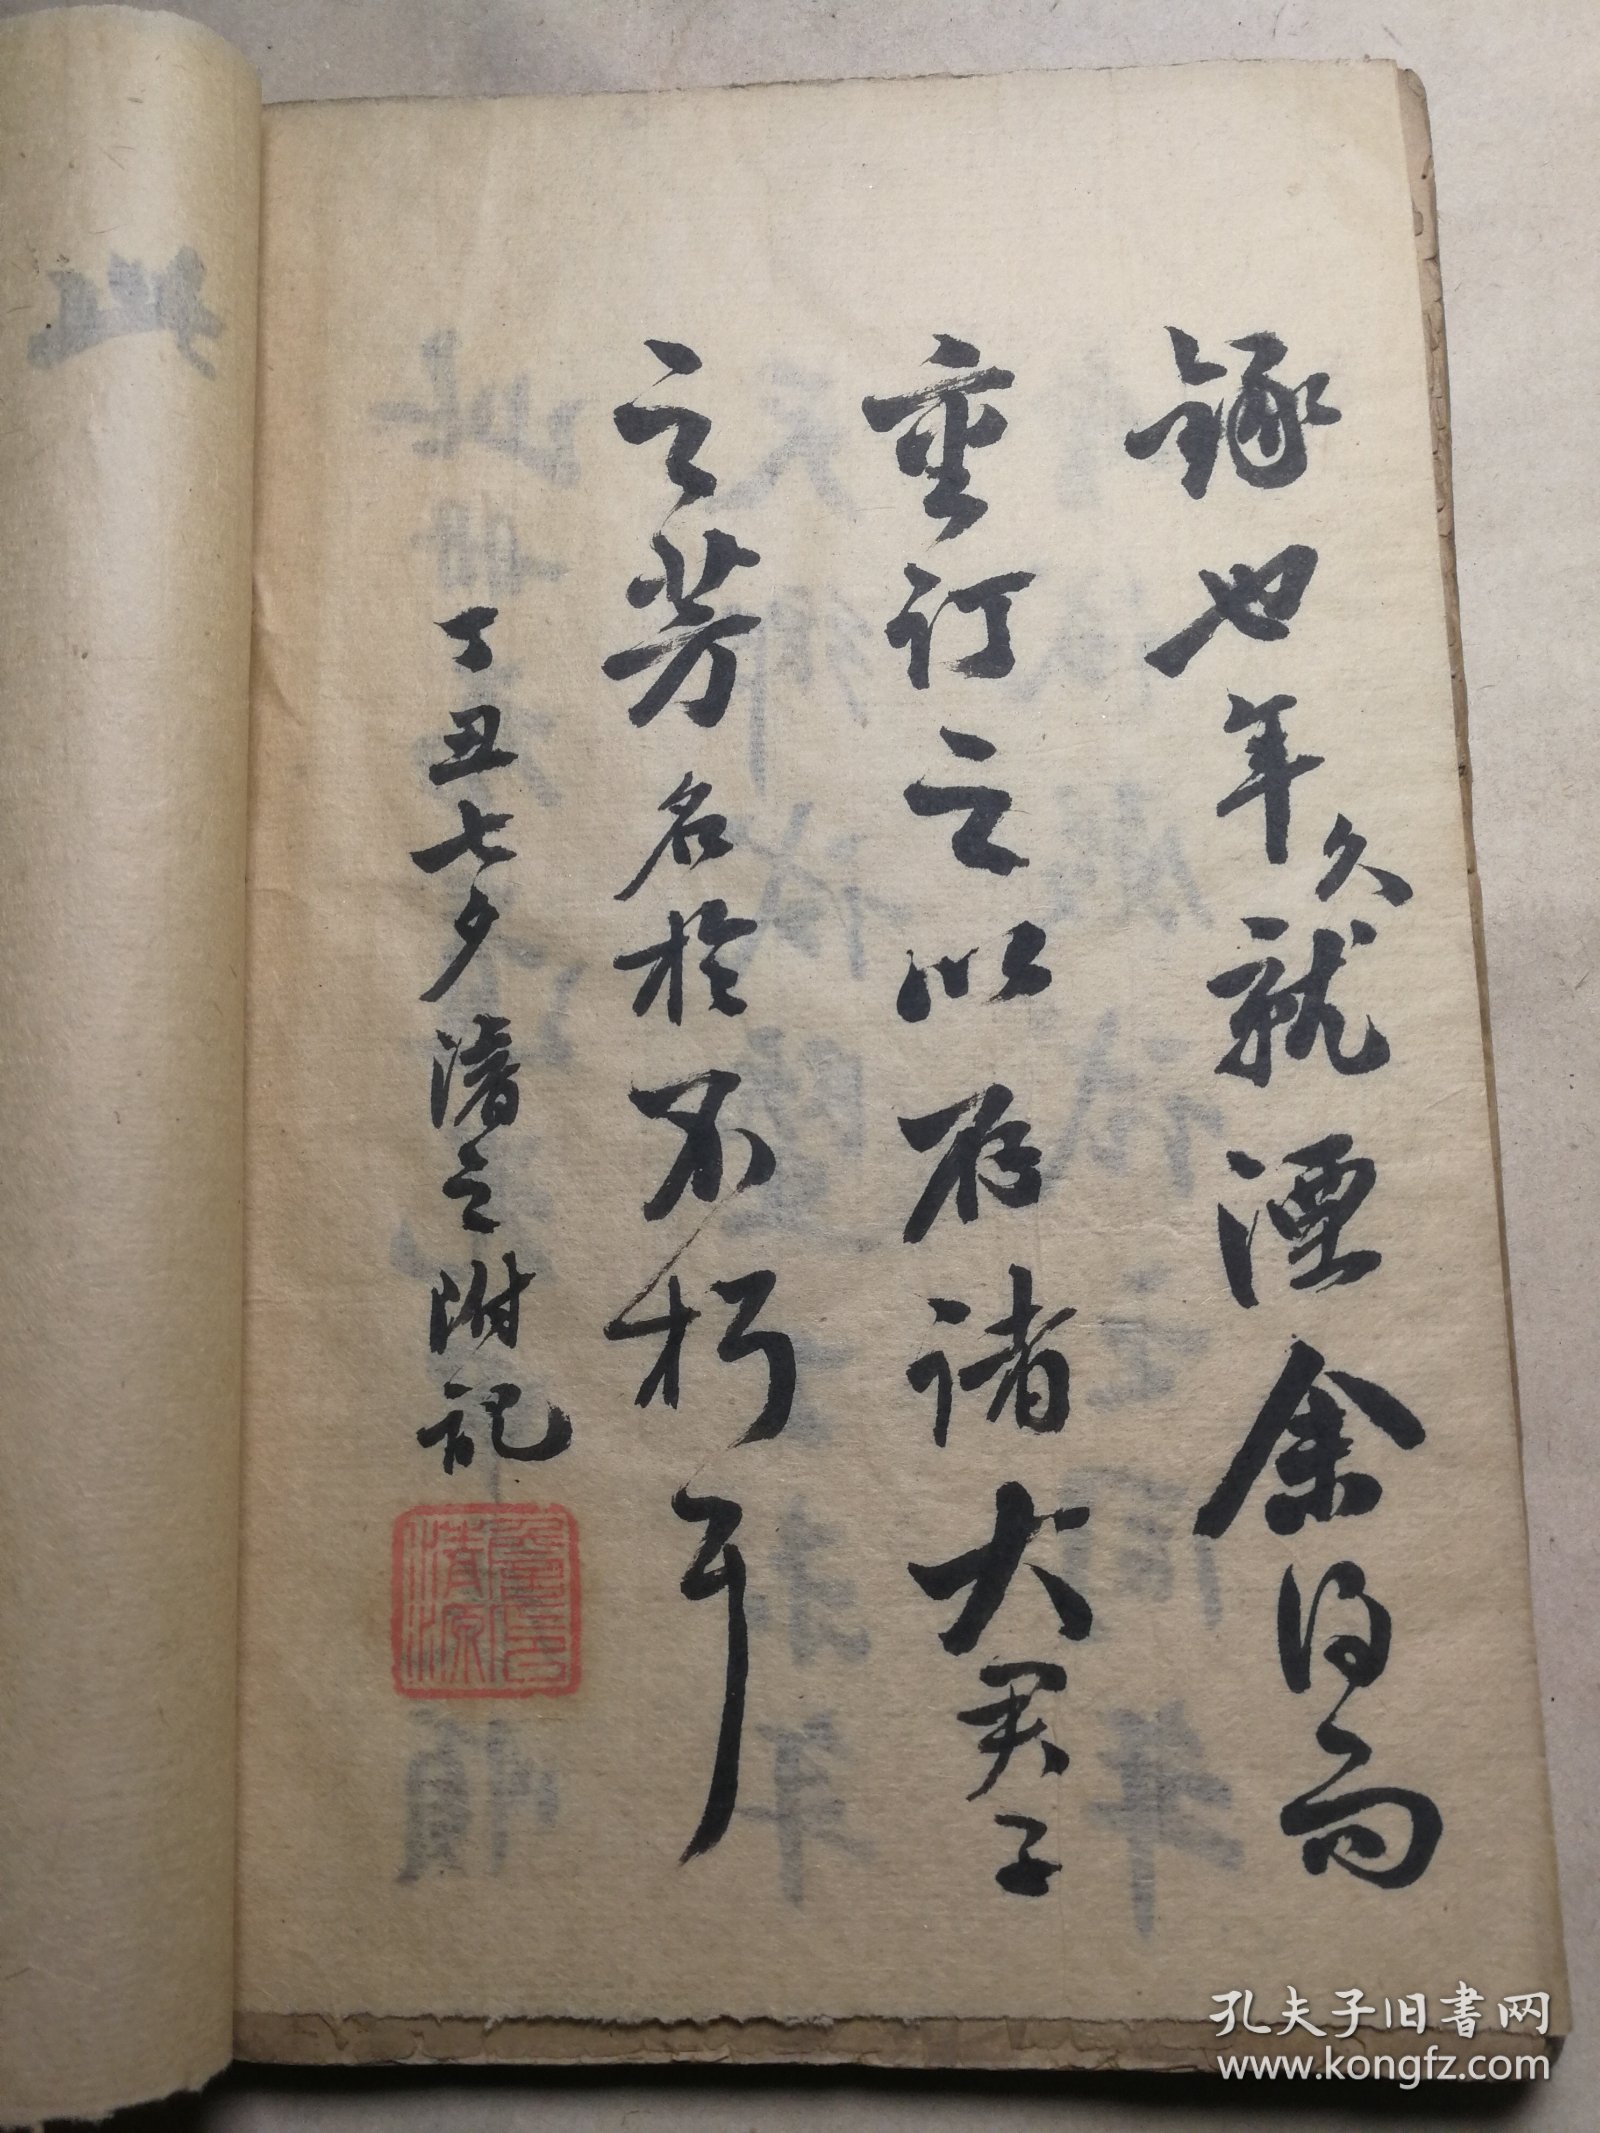 錄也年久就湮余得而
重訂之以存諸大君子
之芳名於不朽耳
丁丑七夕濬之附記
孔夫子旧書网
www.kongfz.com